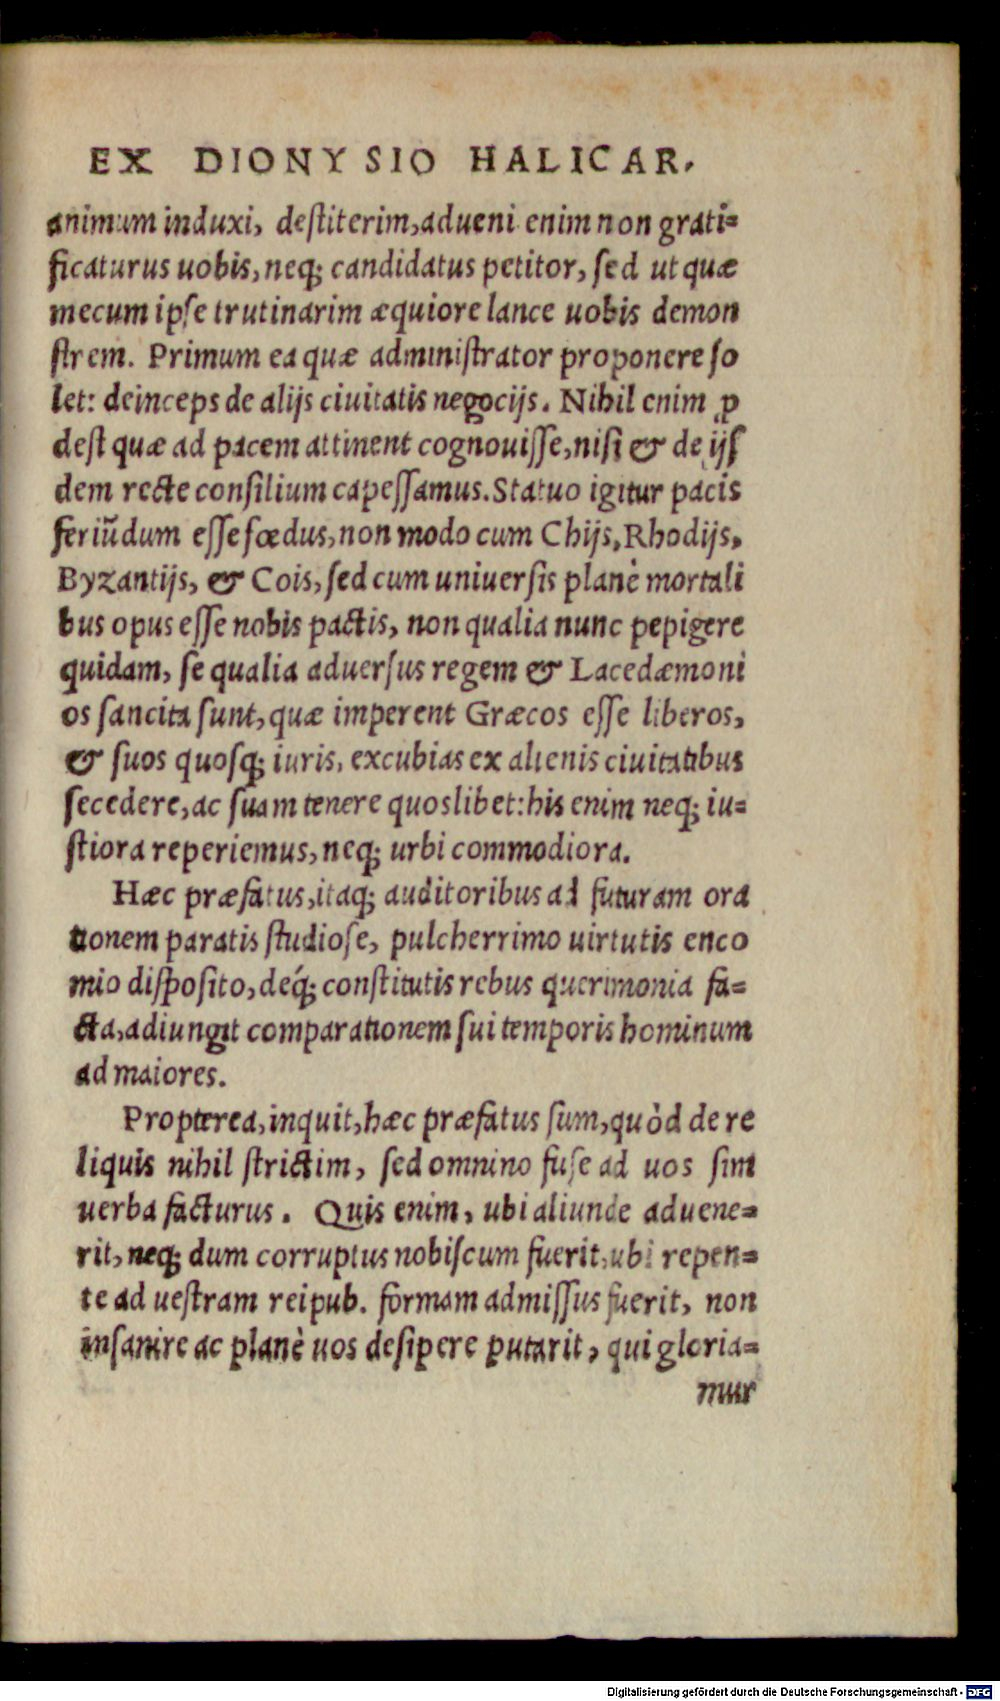 EX DIONYSIO HALICAR.
animum induxi, destiterim, adueni enim non grati=
ficaturus uobis, neq; candidatus petitor, sed ut quæ
mecum ipse trutinarim æquiore lance uobis demon
strem. Primum ea quæ administrator proponere so
let: deinceps de alijs ciuitatis negocijs. Nihil enim ꝓ
dest quæ ad pacem attinent cognouisse, nisi & de ijs
dem recte consilium capessamus. Statuo igitur pacis
feriūdum esse fœdus, non modo cum Chijs, Rhodijs,
Byzantijs, & Cois, sed cum uniuersis planè mortali
bus opus esse nobis pactis, non qualia nunc pepigere
quidam, se qualia aduersus regem & Lacedæmoni
os sancita sunt, quæ imperent Græcos esse liberos,
& suos quosq; iuris, excubias ex alienis ciuitatibus
secedere, ac suam tenere quoslibet: his enim neq; iu=
stiora reperiemus, neq; urbi commodiora.
Hæc præfatus, itaq; auditoribus ad futuram ora
tionem paratis studiose, pulcherrimo uirtutis enco
mio disposito, deq́; constitutis rebus querimonia fa=
cta, adiungit comparationem sui temporis hominum
ad maiores.
Propterea, inquit, hæc præfatus sum, quòd de re
liquis nihil strictim, sed omnino fuse ad uos sim
uerba facturus. Quis enim, ubi aliunde aduene=
rit, neq; dum corruptus nobiscum fuerit, ubi repen=
te ad uestram reipub. formam admissus fuerit, non
insanire ac planè uos desipere putarit, qui gloria=
mur
Digitalisierung gefördert durch die Deutsche Forschungsgemeinschaft - DFG